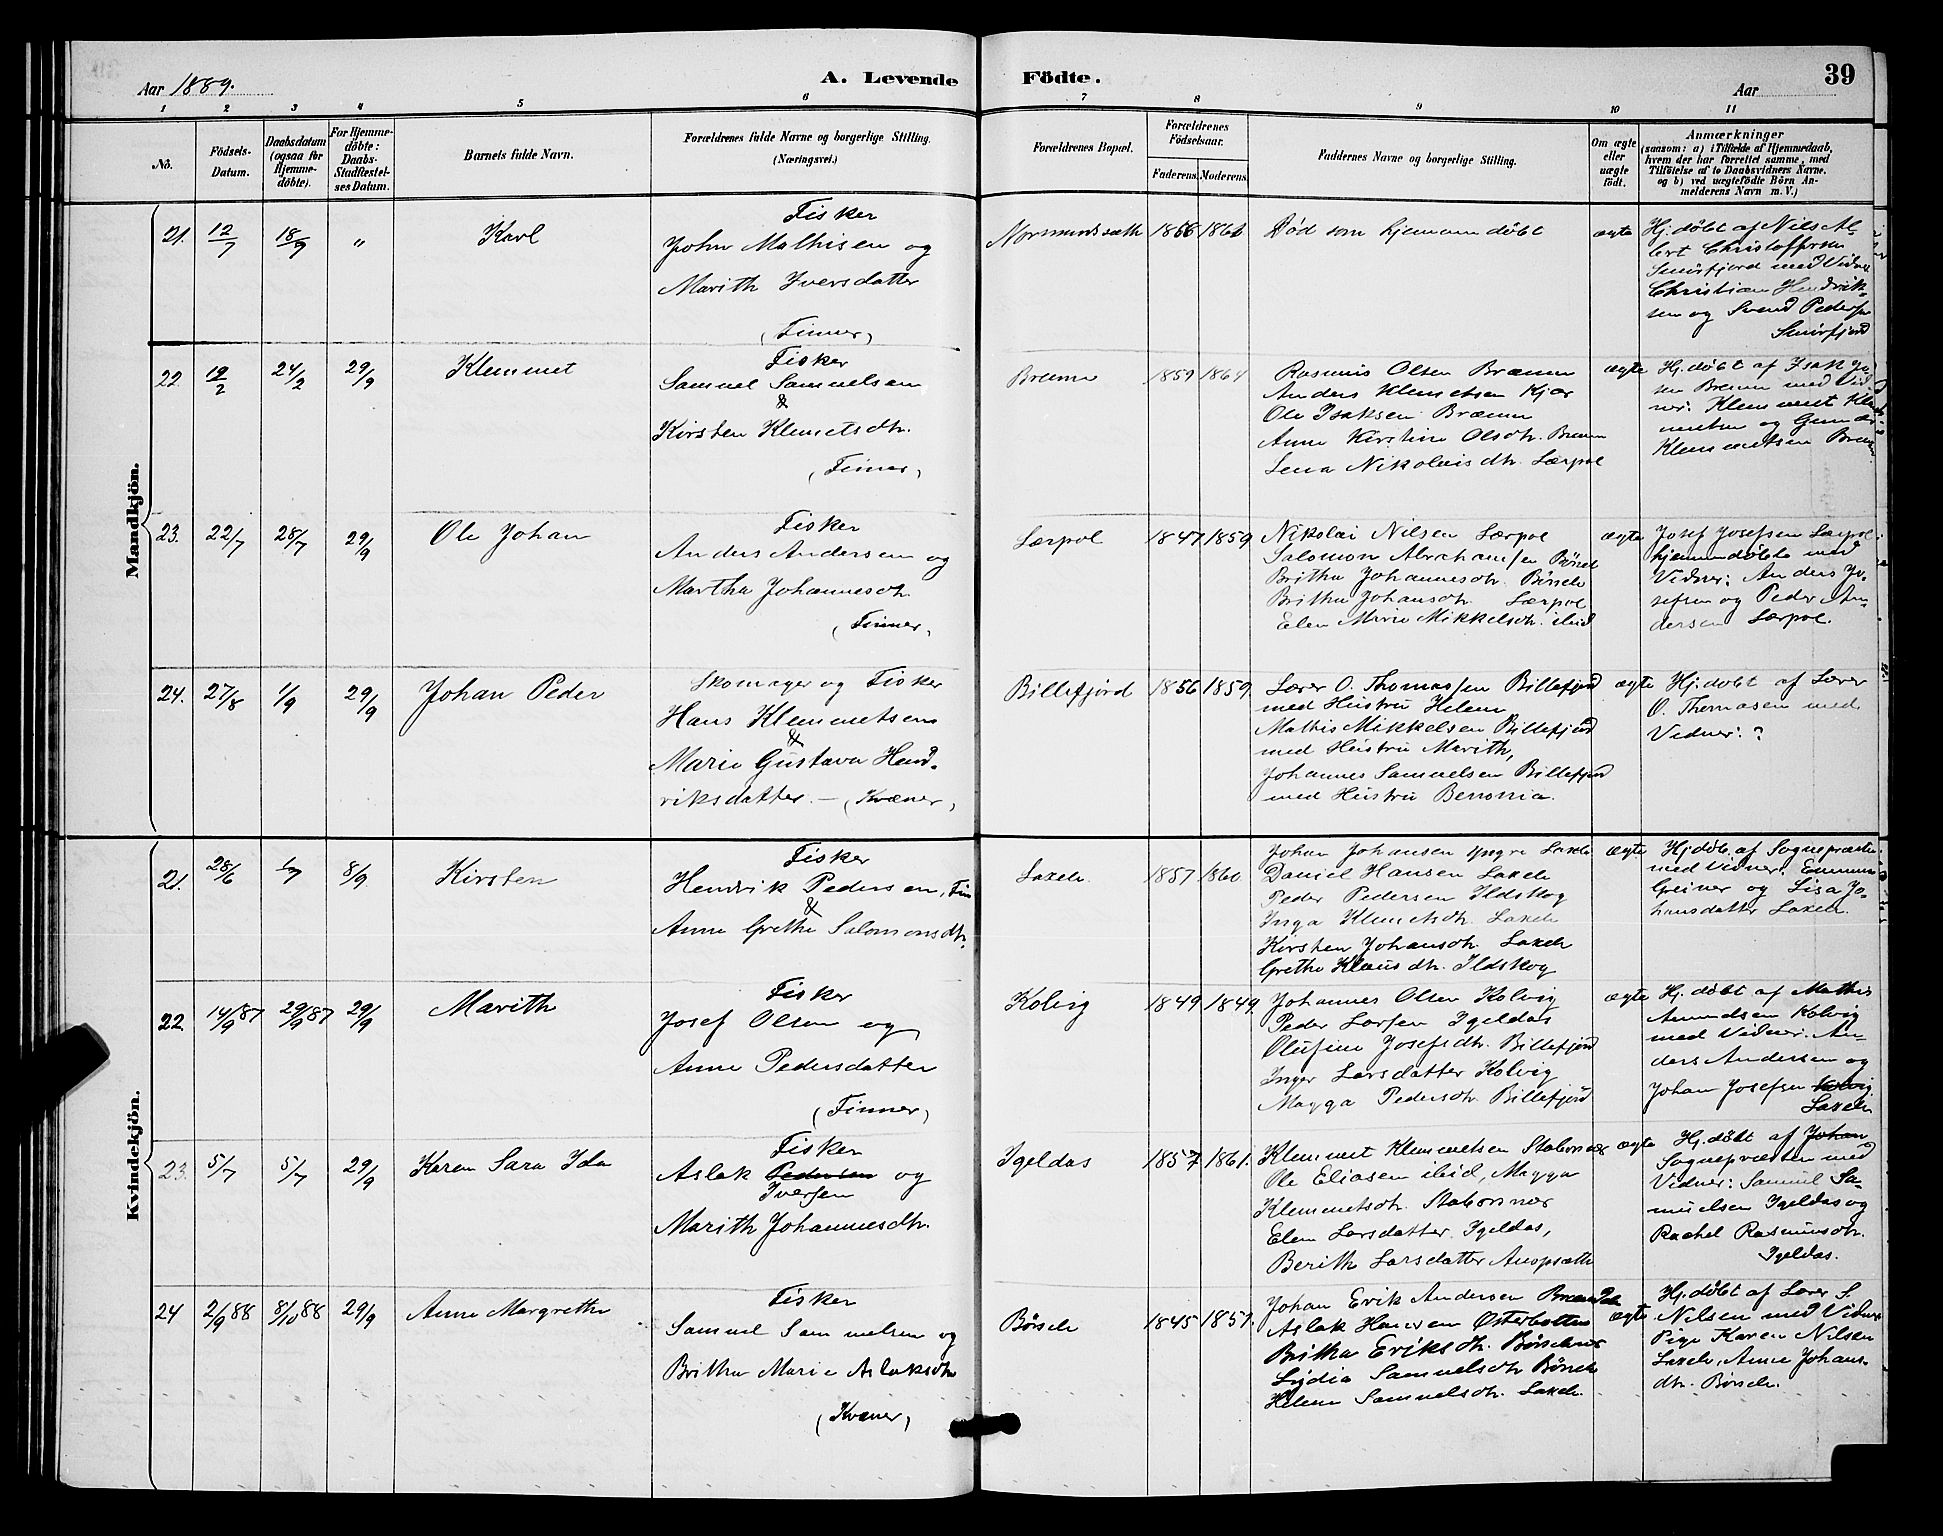 Aar 1889.
A. Levende Födte.
39
Aar
1 2 3 4 5 6 7 8 9 10 11
No.
Födsels-Datum.
Daabsdatum (ogsaa for Hjemme-döbte).
For Hjemme-döbte: Daabs-Stadfæstel-ses Datum.
Barnets fulde Navn.
Forældrenes fulde Navne og borgerlige Stilling. (Næringsvei.)
Forældrenes Bopæl.
Forældrenes Födselsaar.
Faderens. Moderens.
Faddernes Navne og borgerlige Stilling.
Om ægte eller uægte födt.
Anmærkninger
(saasom: a) i Tilfælde af Hjemmedaab,
hvem der har forrettet samme, med
Tilföielse af to Daabsvidners Navne.
og b) ved uægtefödte Börn An-
melderens Navn m. V.)
Mandkjön.
21. 12/7 18/9 "
Karl
Fisker
John Mathisen og
Marith Iversdatter
(Finner)
Normundssæth
Død som hjemmedöbt
ægte
Hj. döbt af Nils Al-
bert Christoffersen
Smörfjord med Vidner
Christian Hendrik-
sen og Svend Pedersen
Smörfjord
22. 19/2 24/2 29/9
Klemmet
Fisker
Samuel Samuelsen
&
Kirsten Klemetsdtr.
(Finner)
Brenna
1859 1864
Rasmus Olsen Brænna
Anders Klemetsen Kjær
Ole Isaksen Brænna
Anne Kirstine Olsdtr. Brenna
Lena Nikolaisdtr. Lærpol
ægte
Hj. döbt af Isak
sen Brenna med Vid
ner: Klemmet Kle
metsen og Gunder
Klemmetsen Brenna
23. 22/7 28/7 29/9
Ole Johan
Fisker
Anders Andersen og
Martha Johannesdtr.
(Finner)
Lærpol
1847 1859
Nikolai Nilsen Lærpol
Salomon Abrahamsen Börsele
Britha Johannesdtr. Börsele
Britha Johansdtr. Lærpol
Elen Marie Mikkelsdtr. ibid
ægte
Josef Josefsen Lærpol
hjemmedöbte med
Vidner: Anders Jo-
sefsen og Peder An-
dersen Lærpol.
24. 27/8 1/9 29/9
Johan Peder
Skomager og Fisker
Hans Klemmetsen
&
Marie Gustava Hend-
riksdatter. — (Kvæner)
Billefjord
1856 1859.
Lærer O. Thomassen Billefjord
med Hustru Helene
Mathis Mikkelsen Billefjord
med Hustru Marith,
Johannes Samuelsen Billefjord
med Hustru Bennonia.
ægte
Hj. döbt af Lærer
O. Thomasen med
Vidner: ?
Kvindekjön.
21. 28/6 1/7 8/9
Kirsten
Fisker
Hendrik Pedersen, Fin
&
Anne Grethe Salomonsdtr.
Laxelv.
1857 1860
Johan Johansen yngre Laxelv
Daniel Hansen Laxelv
Peder Pedersen Ildskog
Inga Klemetsdtr. Laxelv
Kirsten Johansdtr. Laxelv
Grethe Klausdtr. Ildskog
ægte
Hj. döbt af Sognepræsten
med Vidner: Emma
Greiner og Lisa Jo-
hansdatter Laxelv.
22. 14/9 87 29/9 87 29/9
Marith
Fisker
Josef Olsen og
Anne Pedersdatter
(Finner)
Kolvig
1849 1849.
Johannes Olsen Kolvig
Peder Larsen Igeldas
Olufine Josefsdtr. Billefjord
Inger Larsdatter Kolvig
Magga Pedersdtr. Billefjord
ægte
Hj. döbt af Mathis
Amundsen Kolvig
med Vidner: An-
ders Andersen og
Johan Josefsen Kolvig
Laxelv
23. 5/7 5/7 29/9
Karen Sara Ida
Fisker
Aslak Pedersen og
Iversen
Marith Johannesdtr.
Igeldas
1857 1861.
Klemmet Klemmetsen Stabersnæs
Ole Eliasen ibid, Magga
Klemmetsdtr. Stabersnæs
Elen Larsdatter Igeldas,
Berith Larsdatter
ægte
Hj. döbt af Johan
Sognepræsten med
Vidner: Samuel Sa-
muelsen Igeldas og
Rachel Rasmusdtr.
Igeldas.
24 2/9 88 8/10 88 29/9
Anne Margrethe
Fisker
Samuel Samuelsen og
Britha Marie Aslaksdtr
(Kvæner)
Börselv
1845 1857.
Johan Erik Andersen
Aslak Hansen Österbotten
Britha Eriksdtr. Börselvnæs
Lydia Samuelsdtr Börselv
Helene Samuelsdtr. Laxelv.
ægte
Hj. döbt af Lærer S.
Nilsen med Vidner
Pige Karen Nilsen
Laxelv. Anne Johans-
dtr. Börselv.